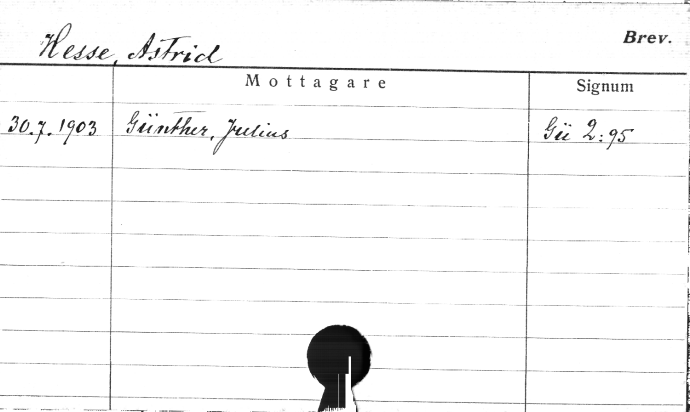 Hesse, Astrid
Brev.
Mottagare
Signum
30.7.1903 Günther, Julius Gü 2:95